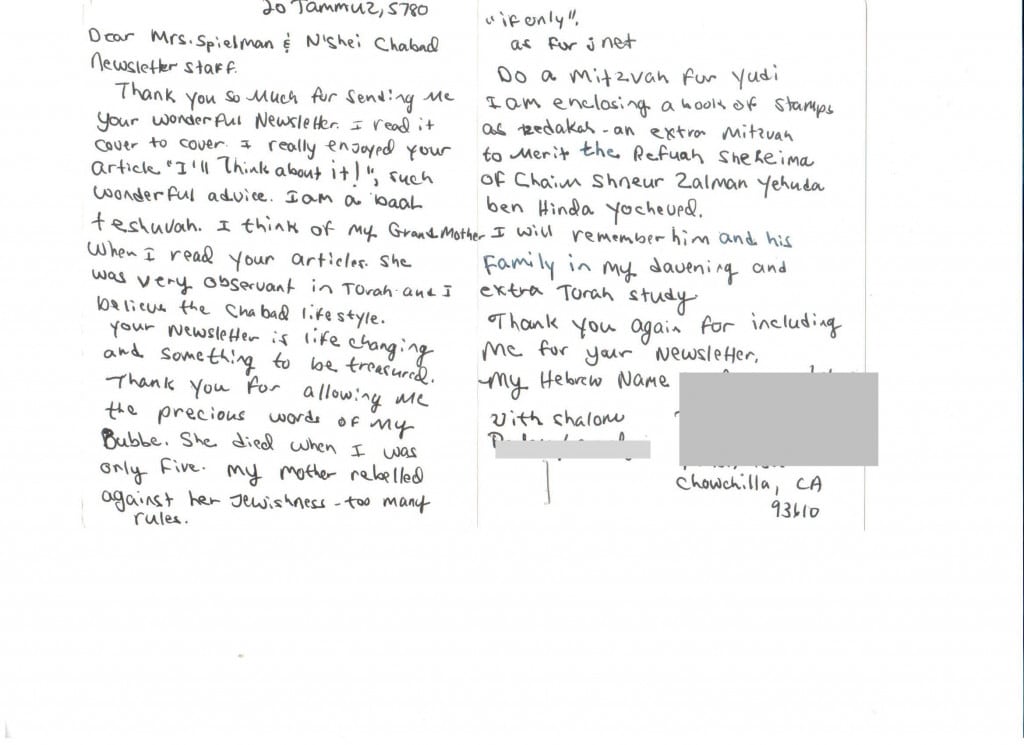 20 Tammuz, 5780
Dear Mrs. Spielman & N'shei Chabad
Newsletter staff.
Thank you so much for sending me
your wonderful Newsletter. I read it
cover to cover. I really enjoyed your
article "I'll Think about it!", such
wonderful advice. I am a baal
teshuvah. I think of my Grand Mother
When I read your articles. She
was very observant in Torah and I
believe the Chabad lifestyle.
your Newsletter is life changing
and something to be treasured.
Thank you for allowing me
the precious words of my
Bubbe. She died when I was
only five. my mother rebelled
against her Jewishness - too many
rules.
"if only".
as for jnet
Do a Mitzvah for Yudi
I am enclosing a book of stamps
as tzedakah - an extra Mitzvah
to Merit the Refuah Sheleima
of Chaim Shneur Zalman Yehuda
ben Hinda Yocheved.
I will remember him and his
Family in my davening and
extra Torah study
Thank you again for including
me for your Newsletter.
My Hebrew Name
With shalom
Chowchilla, CA
93610